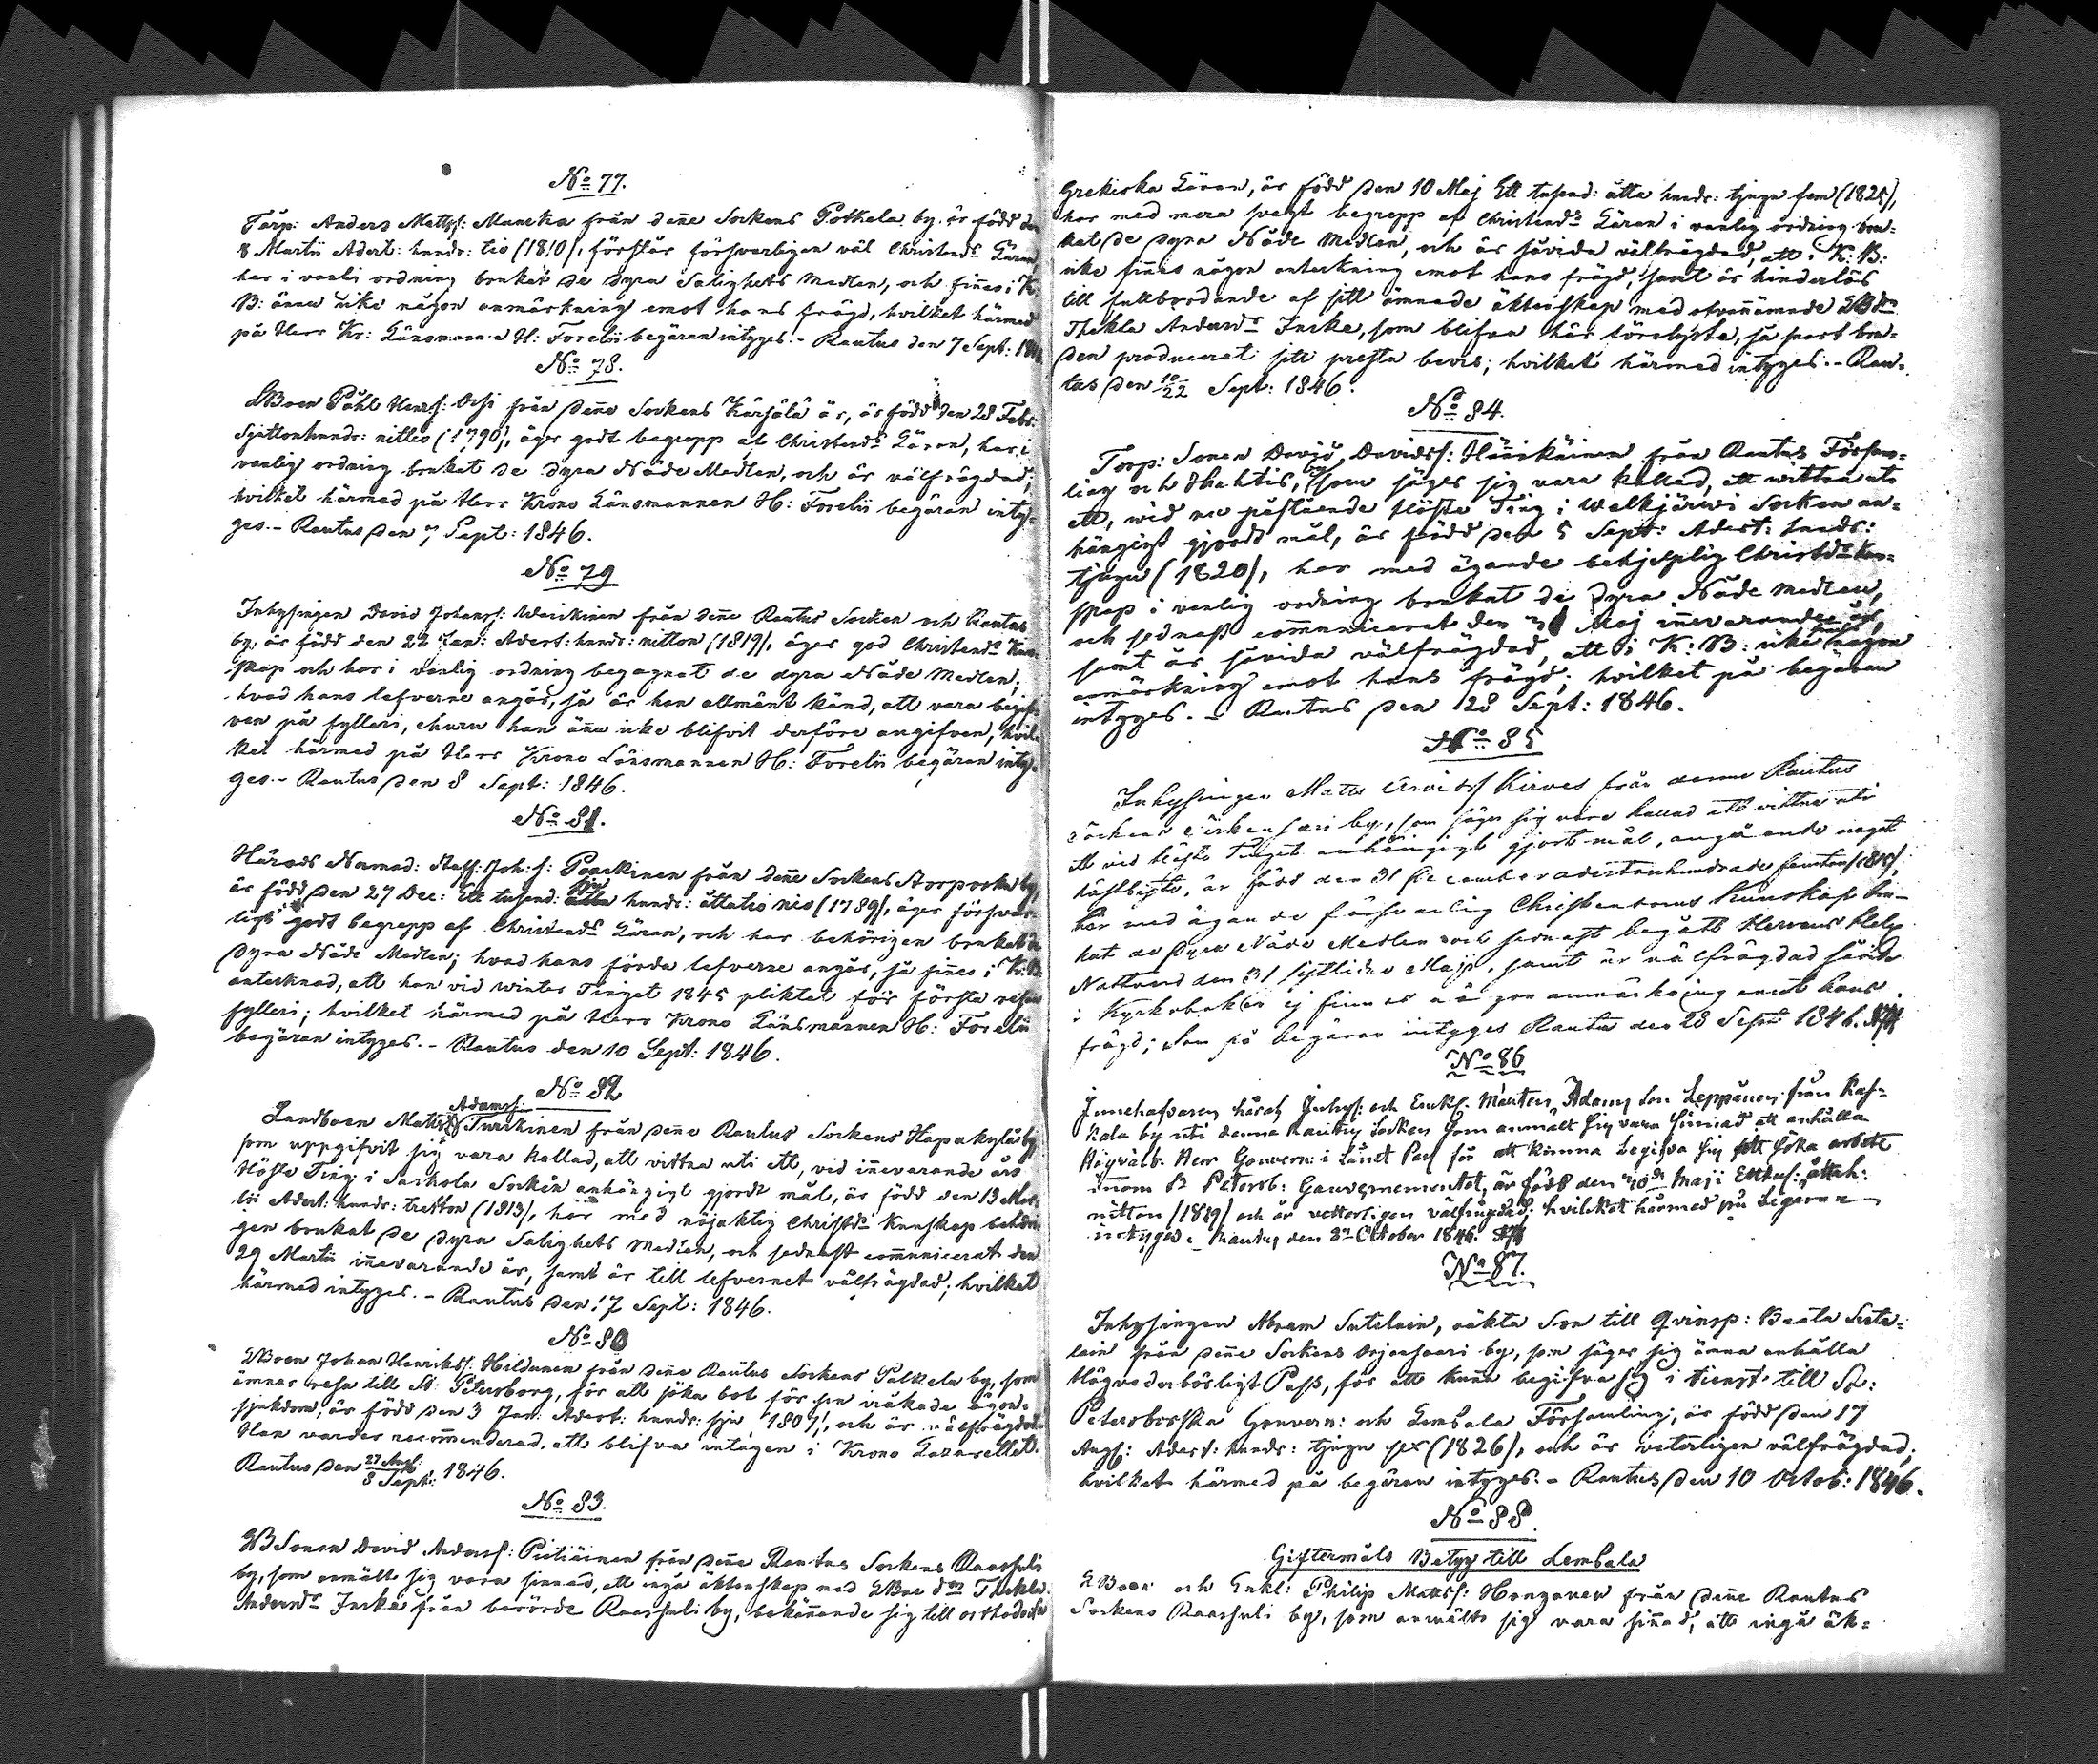 No 77.
Torp: Anders Mattsf: Muncka från deñe Sockens Potkela by. är född den
8 Martii Adert: hundr: tio (1810), förstår försvarligen väl Christends Läran,
har i vanli ordning brukat de dyra Salighets Medlen, och fiñes i K:
B: ännu icke någon anmärkning emot hans frägd, hvilket härmed
på Herr Kr: Länsmanen H: Forelii begäran intyges. - Rautus den 7 Sept:
No 78.
LBoen Påhl Henrsf: Orsi från deñe Sockens Kärsälä är, är född den 28 Febr:
Sjuttonhundr: nittio (1790), äger godt begrepp af Christends Läran, har i
vanlig ordning brukat de dyra Nåde Medlen, och är välfrägdad;
hvilket härmed på Herr Krono Länsmannen H: Forelii begäran inty-
ges. - Rautus den 7 Sept: 1846.
No 79
Inhysingen David Johansf: Weiskinen från deñe Rautus Socken och Rautus
by, är född den 22 Jan: Adert: hundr: nitton (1819), äger god Christends Kun-
skap och har i vanlig ordning begagnat de dyra Nåde Medlen;
hvad hans lefverne angår, så är han allmänt känd, att vara begif-
ven på fylleri, churu han äñu icke blifvit derföre angifven, hvil-
ket härmed på Herr Krono Länsmannen H: Forelii begäran inty-
ges. - Rautus den 8 Sept: 1846.
No 81.
Härads Nemnd: Staff: Joh: f: Paaskinen från deñe Sockens Storporkn by,
är född den 27 Dec: Ett tusend: sju hundr: åttatio nio (1789), äger försvar-
ligt godt begrepp af Christends Läran, och har behörigen brukat de
dyra Nåde Medlen; hvad hans förda lefverne angår, så fiñes i K: B
antecknad, att han vid Winter Tinget 1845 pliktat för första resan
fylleri; hvilket härmed på Herr Krono Länsmannen H: Forelii
begäran intyges. - Rautus den 10 Sept: 1846.
No 82
Landboen Matts Adamsf: Turkinen från deñe Rautus Sockens Hapakylä by,
som uppgifvit sig vara kallad, att vittna uti ett, vid iñevarande års
Höste Ting i Sackola Socken anhängigt gjordt mål, är född den 13 Mar-
tii Adert: hundr: tretton (1813), har med nöjaktig Christds Kunskap behöri-
gen brukat de dyra Salighets Medlen, och sednast com̃unicerat den
29 Martii iñevarande år, samt är till lefvernet välfrägdad; hvilket
härmed intyges. - Rautus den 17 Sept: 1846.
No 80
LBoen Johan Henriksf: Hildunen från deñe Rautus Sockens Palkela by, som
ämnar resa till St: Petersborg, för att söka bot för sin iråkade ögon-
sjukdom, är född den 3 Jan: Adert: hundr: sju (1807), och är välfrägdad.
Han varder recom̃enderad, att blifva intagen i Krono Lazarettet.
Rautus den 27 Aug: / 8 Sept: 1846.
No 83.
LBSonen David Andersf: Piitiäinen från deñe Rautus Sockens Raasuli
by, som anmält sig vara sinnad, att ingå äktenskap med LBoe dn Thekla
Andersds Inske från berörde Raasuli by, bekännande sig till orthodoxa
Grekiska Läran, är född den 10 Maj Ett tusend: åtta hundr: tjugu fem (1825),
har med mera svagt begrepp af Christends Läran i vanlig ordning bru-
kat de dyra Nåde Medlen, och är såvida välfrägdad, att i K: B:
icke fiñes någon anteckning emot hans frägd, samt är hinderlös
till fullbordande af sitt ämnade äktenskap med ofvannämnde LBdn
Thekla Andersds Inske, som blifva här förelyste, så snart bru-
den producerat sitt presta bevis; hvilket härmed intyges. - Rau-
tus den 10/22 Sept: 1846.
No 84.
Torp: Sonen David Davidsf: Häiskäinen från Rautus Försam-
ling och Huhtis, by som säger sig vara kallad, att vittna uti
ett, wid nu påstående Höste Ting i Walkjärvi Socken an-
hängigt gjordt mål, är född den 5 Sept: Adert: hundr:
tjugu (1820), har med ägande behjelplig Christds Kun-
skap i vanlig ordning brukat de dyra Nåde Medlen,
och sednast com̃unicerat den 31 Maj iñevarande år
samt är såvida välfrägdad, att i K: B: icke fiñes någon
anmärkning emot hans frägd; hvilket på begäran
intyges. - Rautus den 28 Sept: 1846.
No 85
Inhysingen Matts Arvidsf Kirves från denne Rautus
Sockens Sirkensaari by, som säger sig vara kallad att vittna uti
ett vid Höste Tinget anhängigt gjort mål, angående något
hästbyte, är född den 31 December adertonhundrade femton (1815),
har med ägande försvarlig Christendoms Kunskap bru-
kat de dyra Nåde Medlen och sednast begått Herrans Helge
Nattvard den 31 sistlidne Maji, samt är välfrägdad såvida
i Kyrkoboken ej finnes någon anmärkning emot hans
frägd; Som på begäran intyges Rautus den 28 Sept 1846.
No 86
Innehafvaren härof Inhys: och Enkl: Mårten Adams Son Leppänen från Raf-
kala by uti denna Rautus Socken som anmält sig vara sinnad att anhålla
Högvälb. Herr Gouvern: i Länet Pass för att kunna begifva sig att söka arbete
inom St Petersb: Gouvernementet, är född den 30de Maji Ett tus: åttah:
nitton (1819) och är vetterligen välfrägdad; hvilket härmed på begäran
intyges. Rautus den 2n October 1846.
No 87.
Inhysingen Abram Sutelain, oäkta Son till Qvinsp: Beata Sute-
lain från deñe Sockens Orjansaari by, som säger sig ämna anhålla
Högvederbörligt Pass, för att kuña begifva sig i tienst till St:
Petersborska Gouvern: och Lembala Församling, är född den 17
Aug: Adert: hundr: tjugu sex (1826), och är veterligen välfrägdad;
hvilket härmed på begäran intyges. - Rautus den 10 Octob: 1846.
No 88.
Giftermåls Betyg till Lembala
LBoen och Enkl: Philip Mattsf: Honganen från deñe Rautus
Sockens Raasuli by, som anmälts sig vara siñad, att ingå äk-